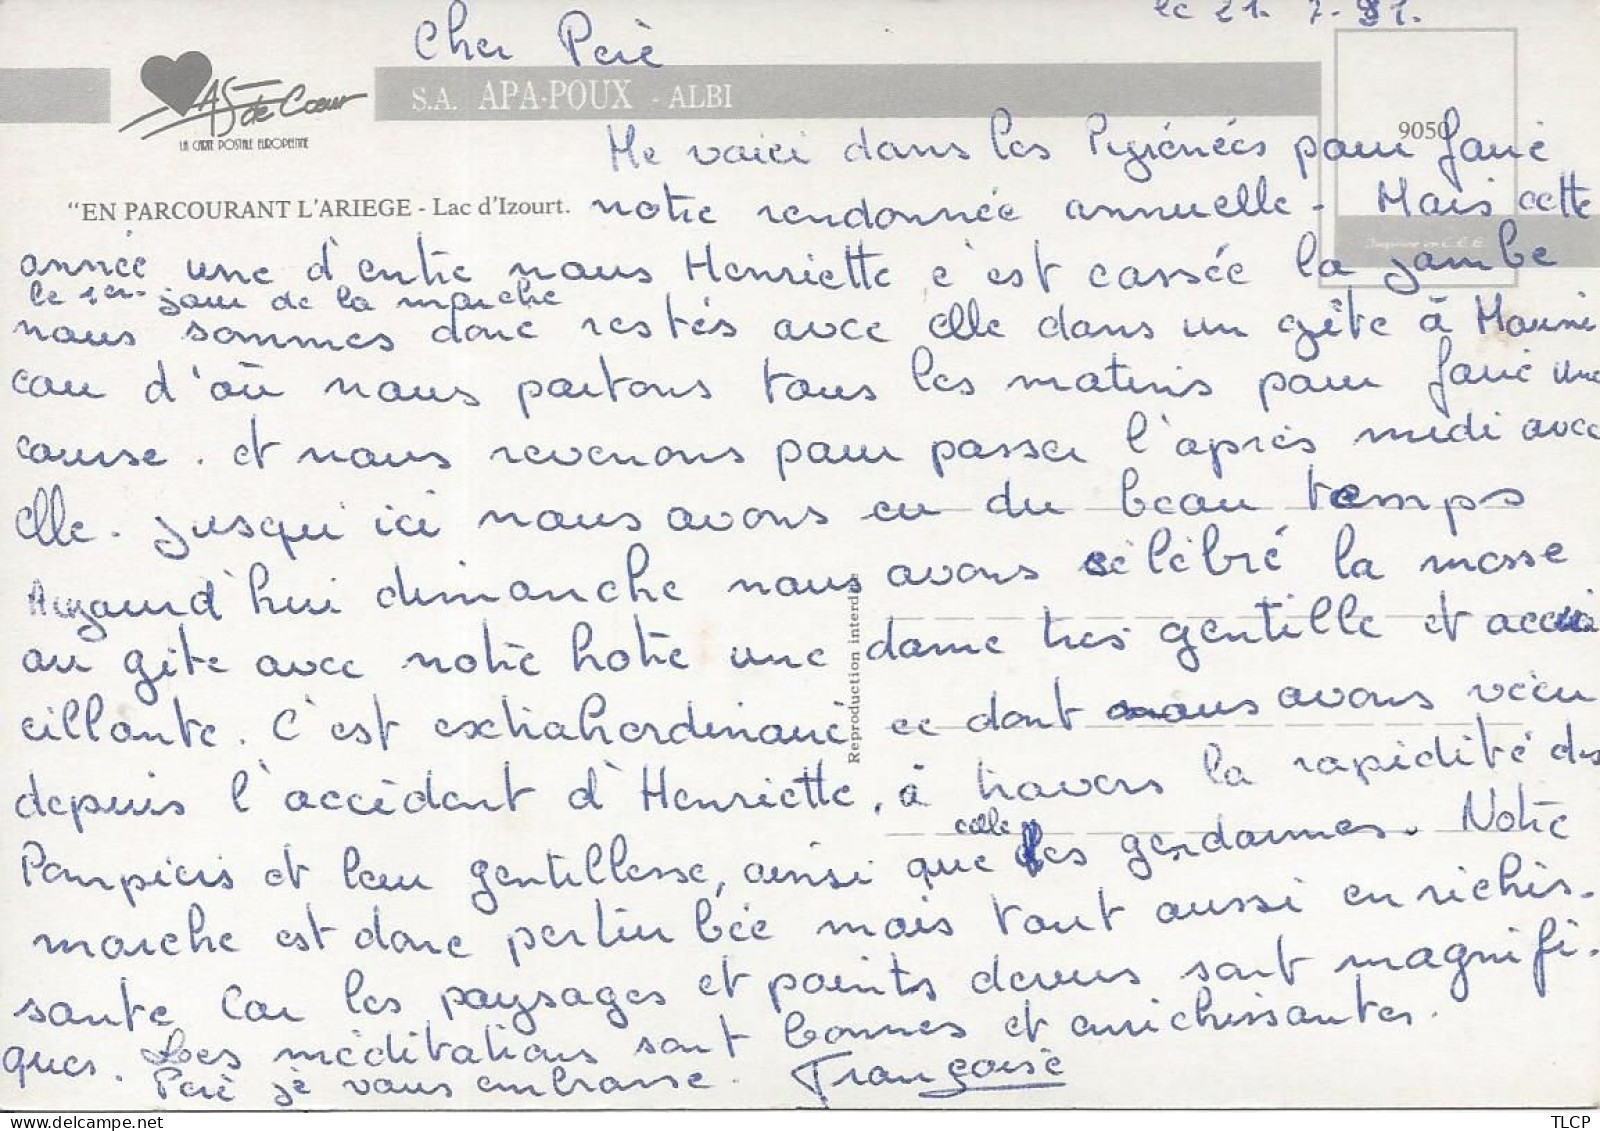 le 21. 7. 91.
Cher Père
AS de Cœur
LA CARTE POSTALE EUROPEENNE
S.A. APA-POUX - ALBI
9050
Me voici dans les Pyrénées pour faire
"EN PARCOURANT L'ARIEGE - Lac d'Izourt.
notre rendonnée annuelle. Mais cette
Imprimé en C.E.E.
année une d'entre nous Henriette c'est cassée la jambe
le 1er jour de la marche
nous sommes donc restés avec elle dans un gîte à
d'où nous partons tous les matins pour faire une
course. et nous revenons pour passer l'après midi avec
elle. jusqu'ici nous avons eu du beau temps
Aujourd'hui dimanche nous avons célébré la messe
au gîte avec notre hote une dame très gentille et accu
eillante. C'est extrahordinaire ce dont nous avons vécu
depuis l'accident d'Henriette, à travers la rapidité des
Pompiers et leur gentillesse, ainsi que celle des gendarmes. Notre
marche est donc perturbée mais tout aussi enrichis-
sante Car les paysages et points devues sont magnifi-
ques. Les méditations sont bonnes et enrichissantes.
Père je vous embrasse. Françoise
Reproduction interdite
TLCP